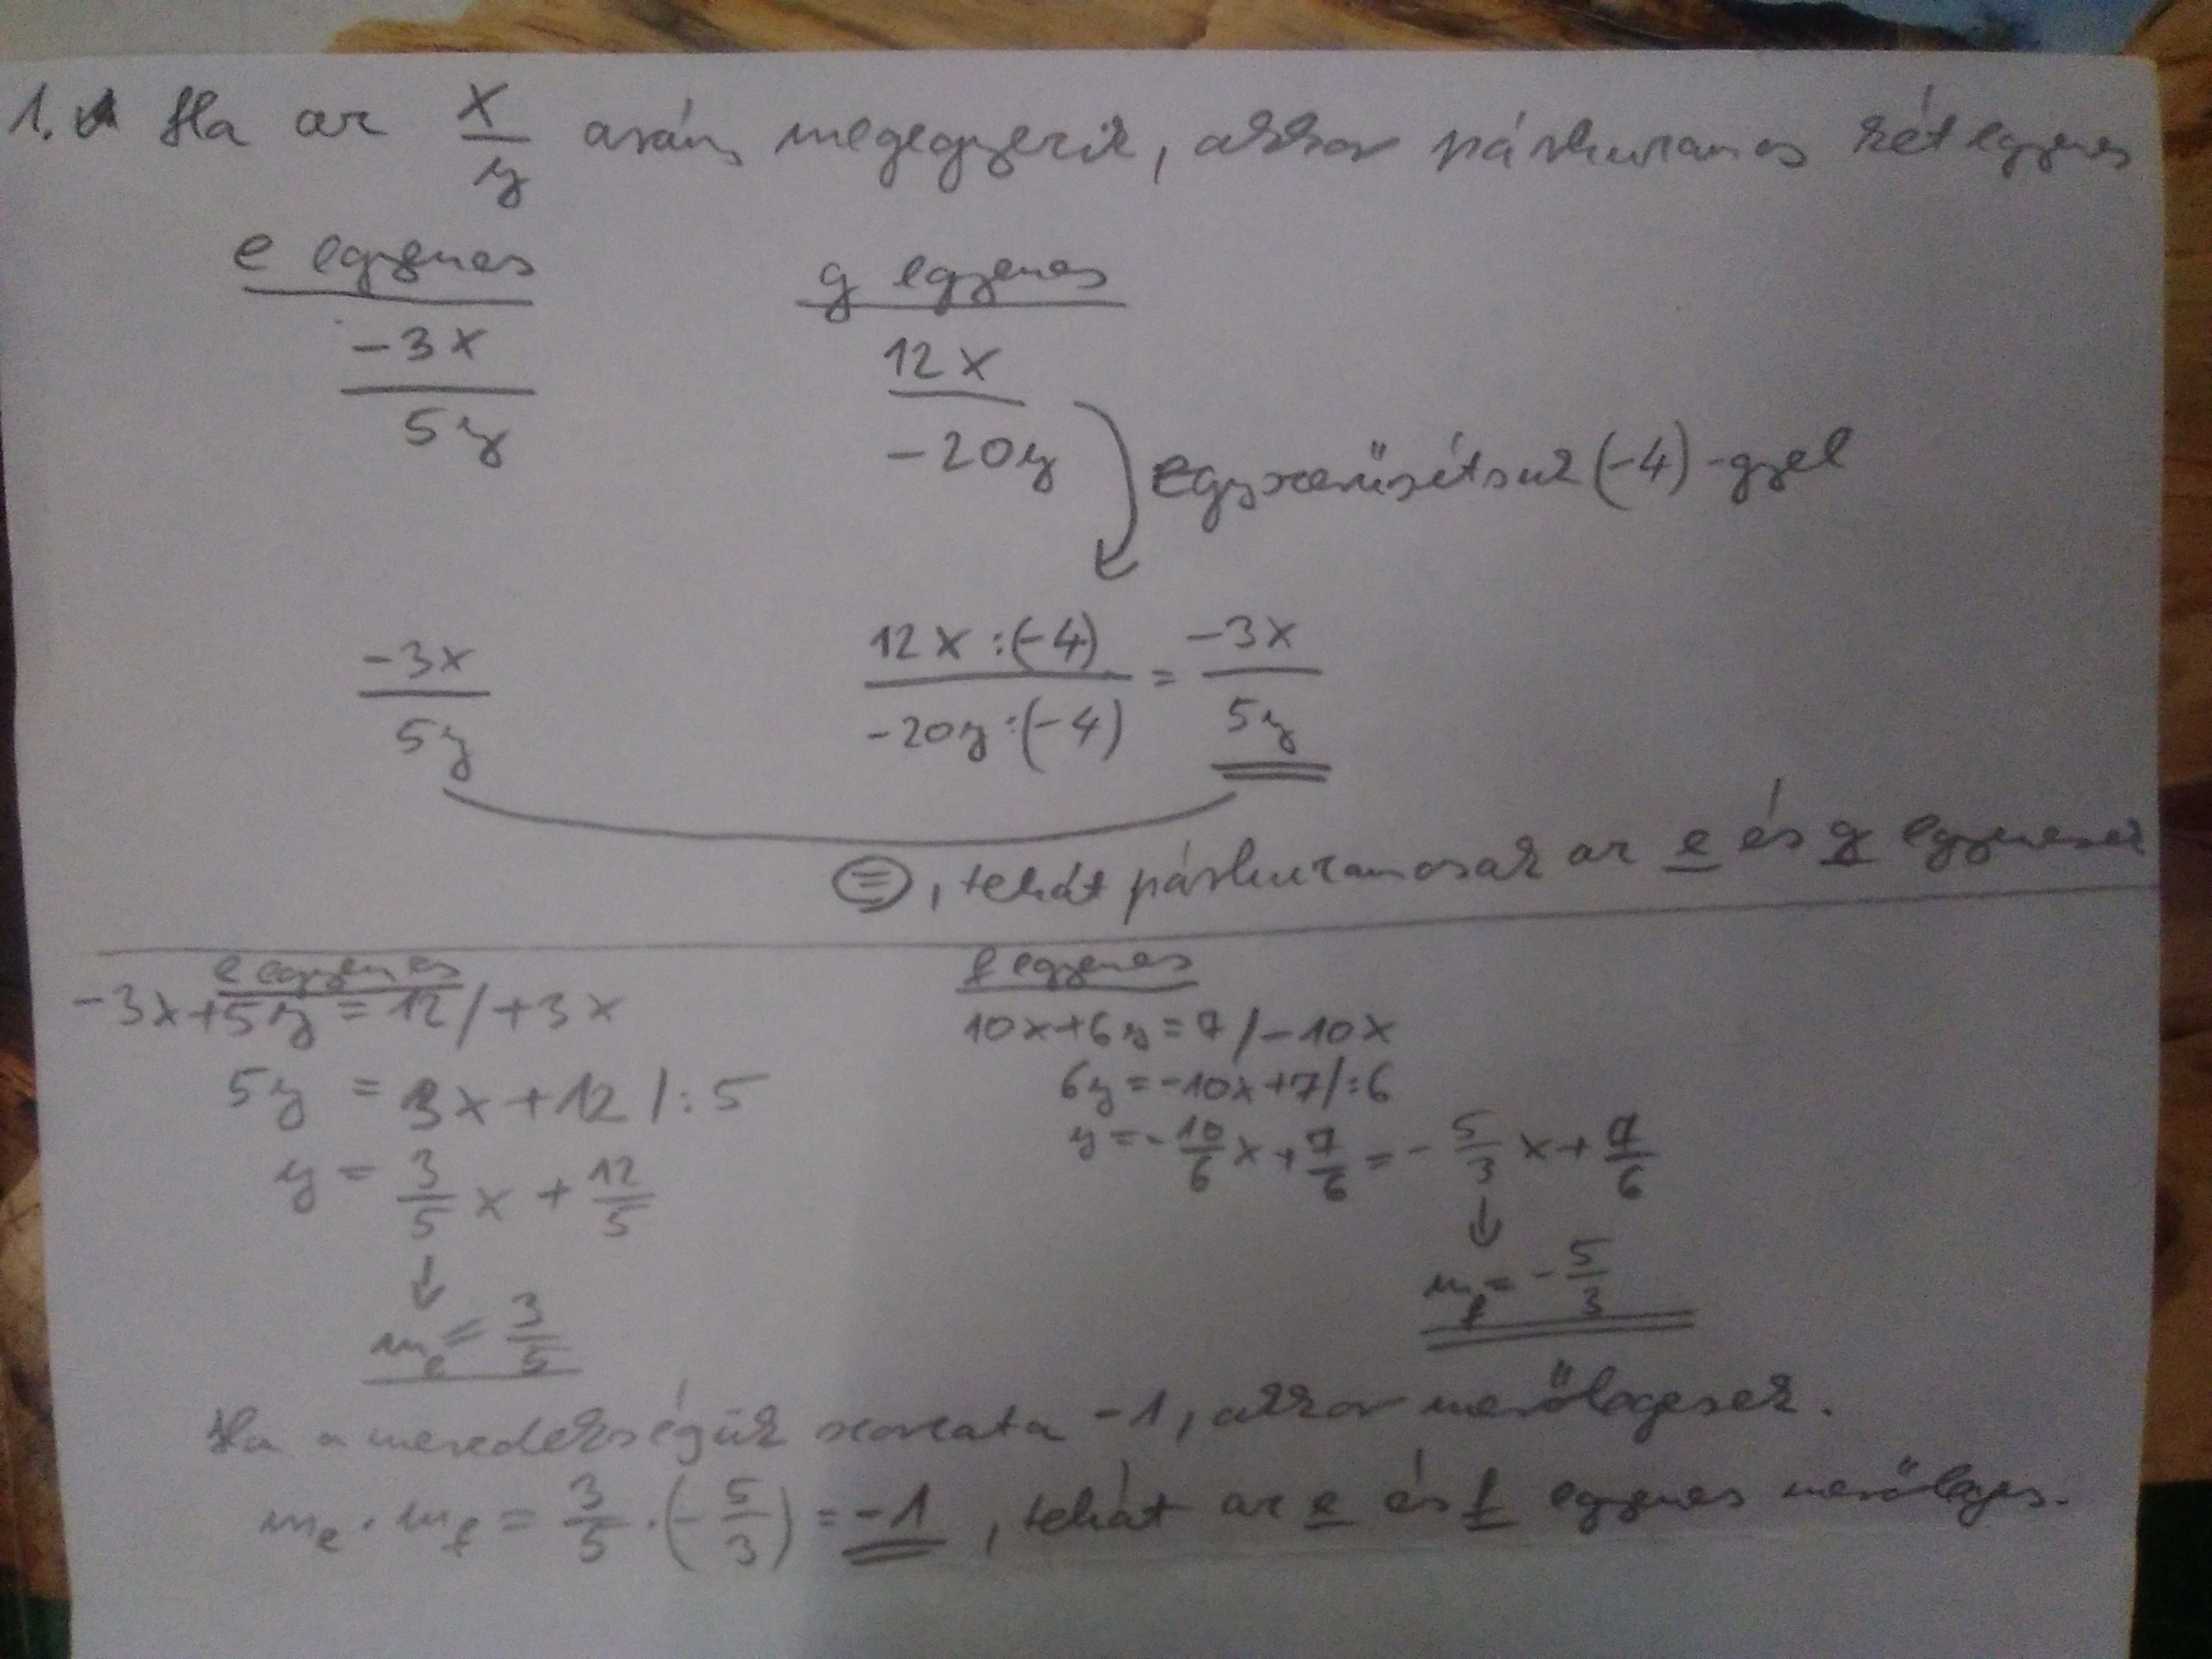 1. Ha az x/y arány megegyezik, akkor párhuzamos két egyenes
e egyenes
g egyenes
-3x/5y
12x/-20y
egyszerűsítsük (-4)-gyel
-3x/5y
12x:(-4)/-20y:(-4) = -3x/5y
=, tehát párhuzamosak az e és g egyenesek
e egyenes
-3x+5y=12 /+3x
5y = 3x+12 /:5
y = 3/5 x + 12/5
↓
m_e = 3/5
f egyenes
10x+6y=7 /-10x
6y=-10x+7 /:6
y=-10/6 x+7/6=-5/3 x+7/6
↓
m_f=-5/3
Ha a meredekségük szorzata -1, akkor merőlegesek.
m_e · m_f = 3/5 · (-5/3) = -1, tehát az e és f egyenes merőleges.